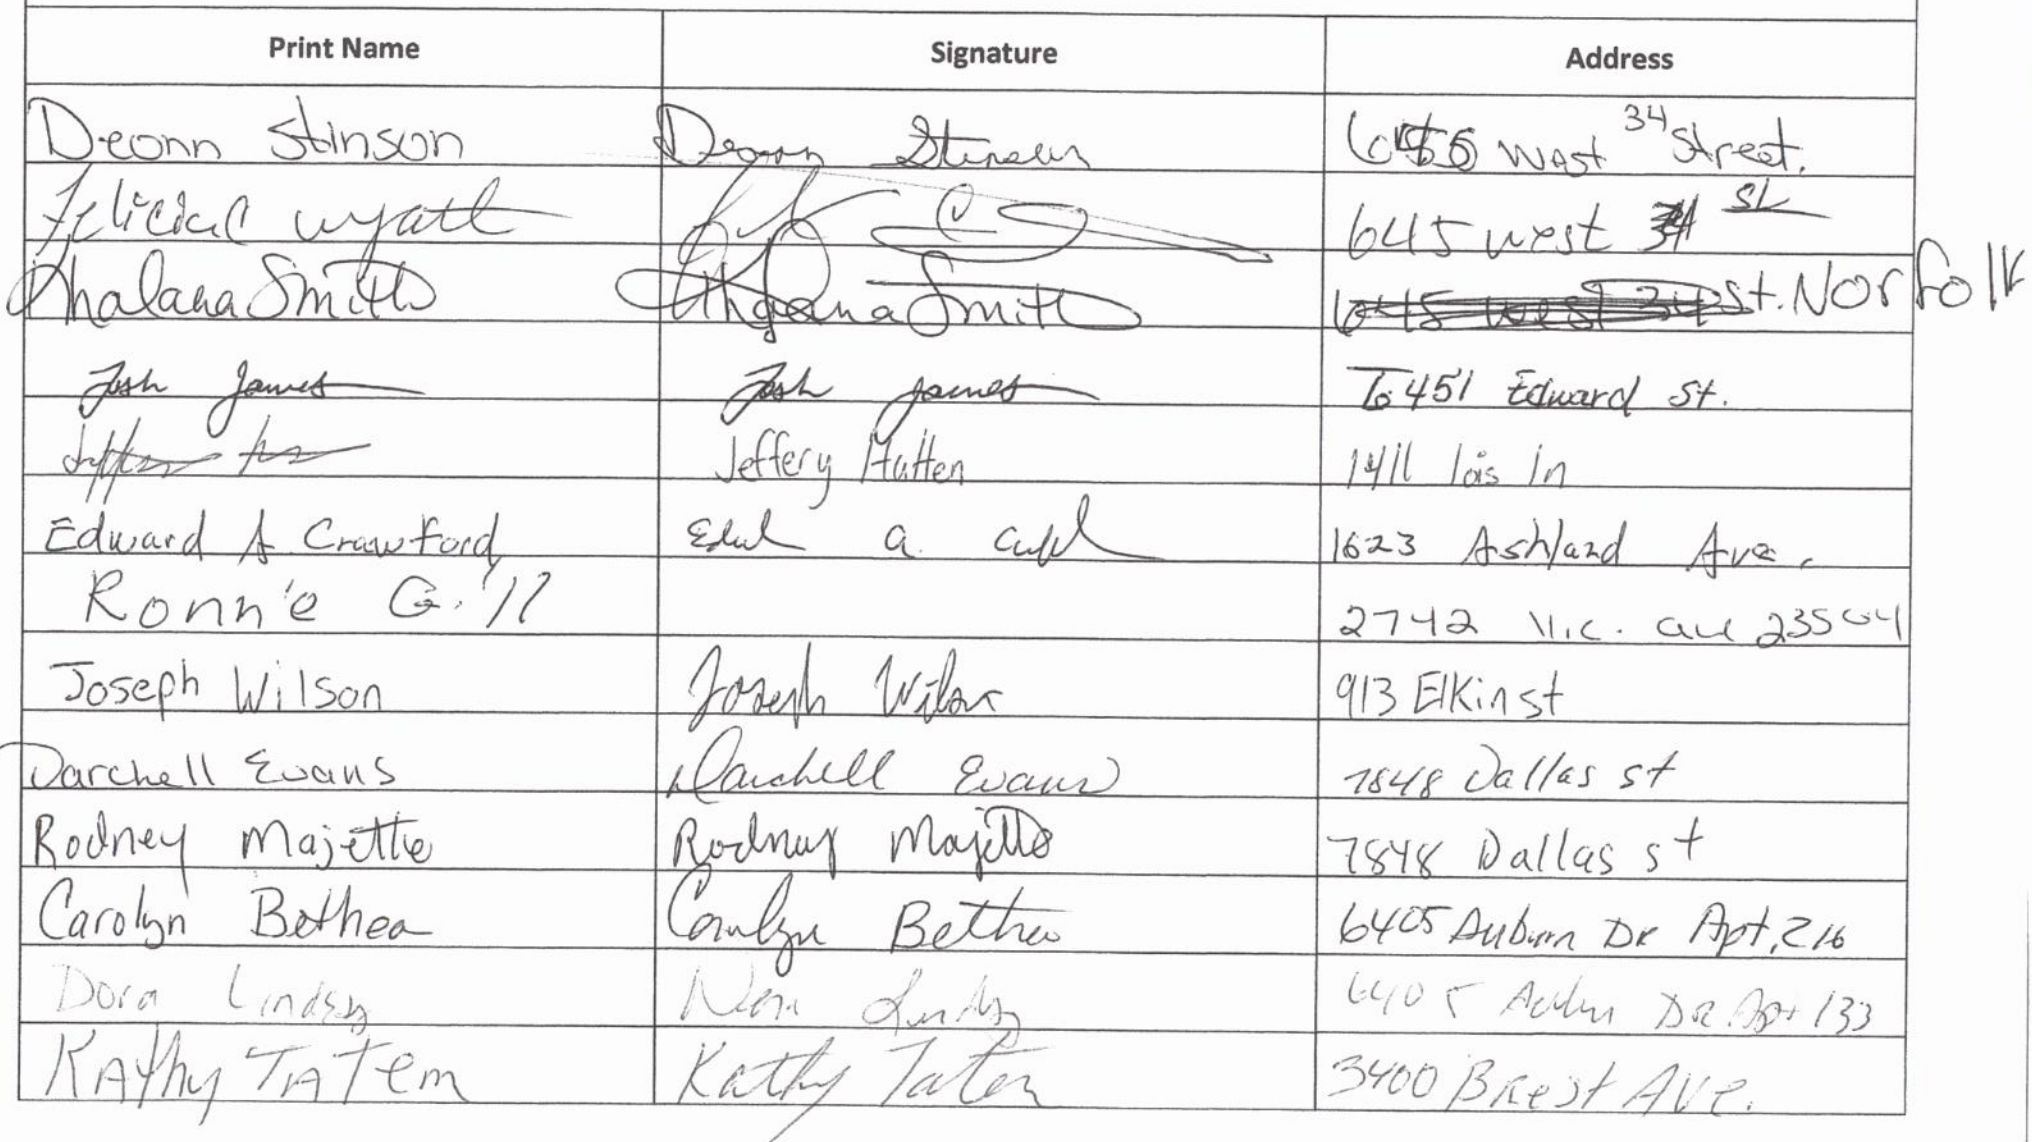 Print Name Signature Address
Deonn Stinson Deonn Stinson West 34 Street.
Felicia C Wyatt 645 west 34 St
Khalana Smith Smith 645 west 34 st. Norfolk
Josh James Josh James 6451 Edward St.
Jeffery Hatten 1411 lois ln
Edward A Crawford Ed a 1623 Ashland Ave.
Ronnie Gill 2742 Vic. ave 23504
Joseph Wilson Joseph Wilson 913 Elkin st
Darchell Evans Darchell Evans 7848 Dallas st
Rodney Majette Rodney Majette 7848 Dallas st
Carolyn Bethea Carolyn Bethea 6405 Auburn Dr Apt, 216
Dora Lindsy Dora Lindsy 6405 Auburn Dr. Apt 133
Kathy TATem Kathy Tatem 3400 Brest Ave.